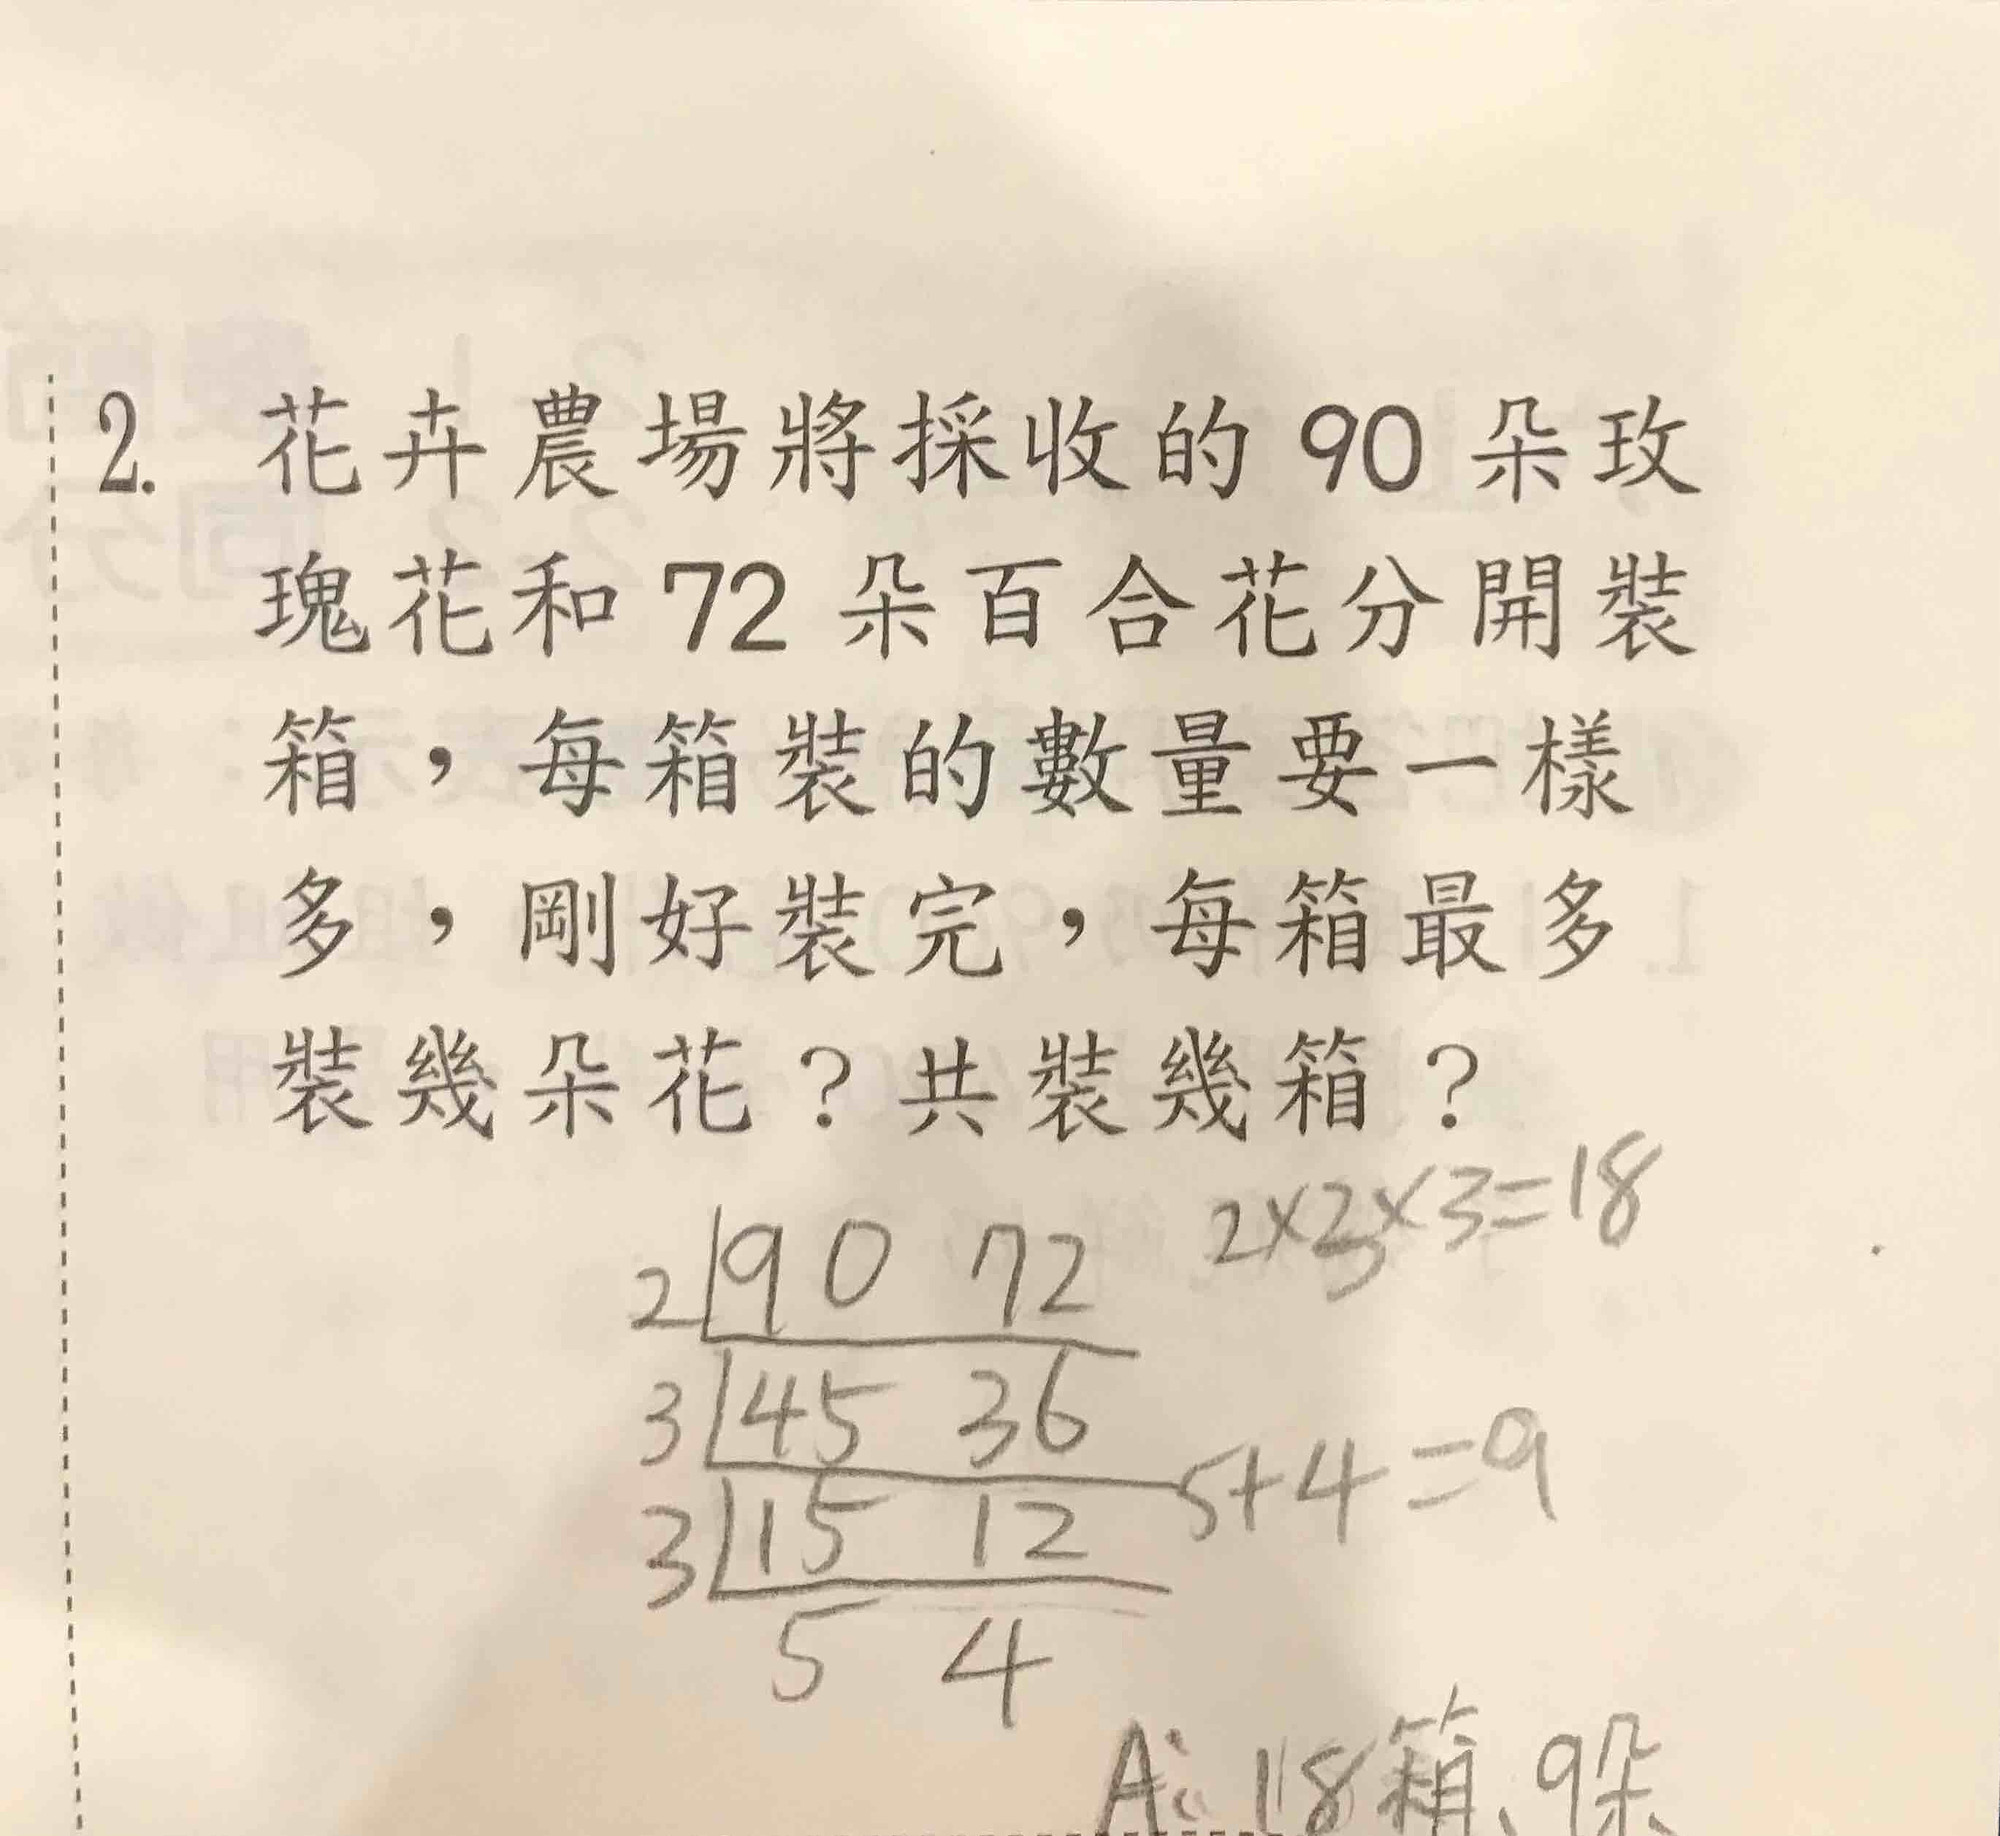 2. 花卉農場將採收的 90 朵玫
瑰花和 72 朵百合花分開裝
箱，每箱裝的數量要一樣
多，剛好裝完，每箱最多
裝幾朵花？共裝幾箱？
2×3×3=18
2 90 72
3 45 36
5+4=9
3 15 12
5 4
A: 18箱、9朵